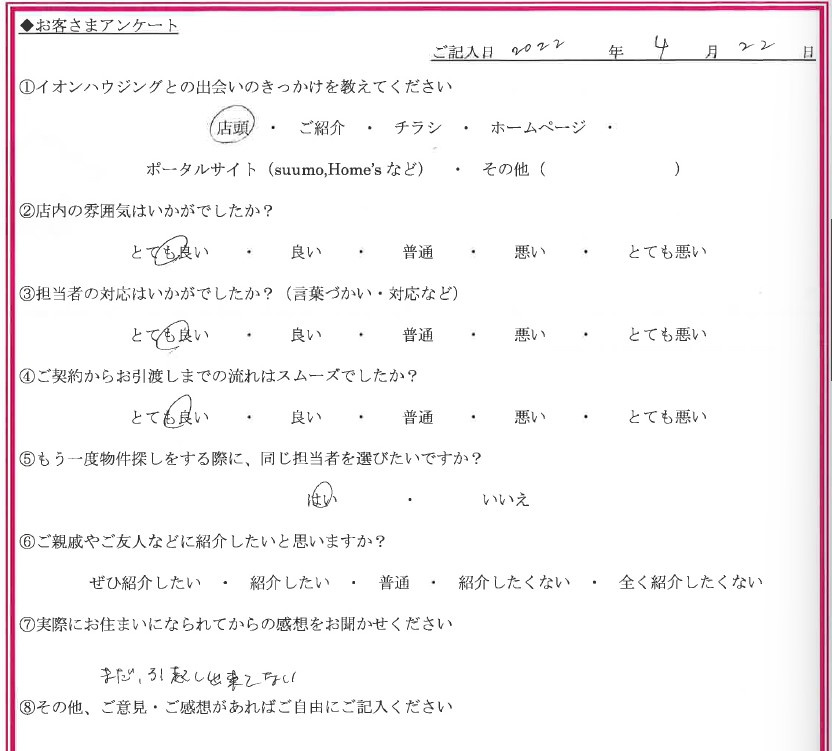 ◆お客さまアンケート
ご記入日 2022 年 4 月 22 日
①イオンハウジングとの出会いのきっかけを教えてください
店頭 ・ ご紹介 ・ チラシ ・ ホームページ ・
ポータルサイト（suumo,Home's など） ・ その他（ ）
②店内の雰囲気はいかがでしたか？
とても良い ・ 良い ・ 普通 ・ 悪い ・ とても悪い
③担当者の対応はいかがでしたか？（言葉づかい・対応など）
とても良い ・ 良い ・ 普通 ・ 悪い ・ とても悪い
④ご契約からお引渡しまでの流れはスムーズでしたか？
とても良い ・ 良い ・ 普通 ・ 悪い ・ とても悪い
⑤もう一度物件探しをする際に、同じ担当者を選びたいですか？
はい ・ いいえ
⑥ご親戚やご友人などに紹介したいと思いますか？
ぜひ紹介したい ・ 紹介したい ・ 普通 ・ 紹介したくない ・ 全く紹介したくない
⑦実際にお住まいになられてからの感想をお聞かせください
まだ、引越し出来てない
⑧その他、ご意見・ご感想があればご自由にご記入ください